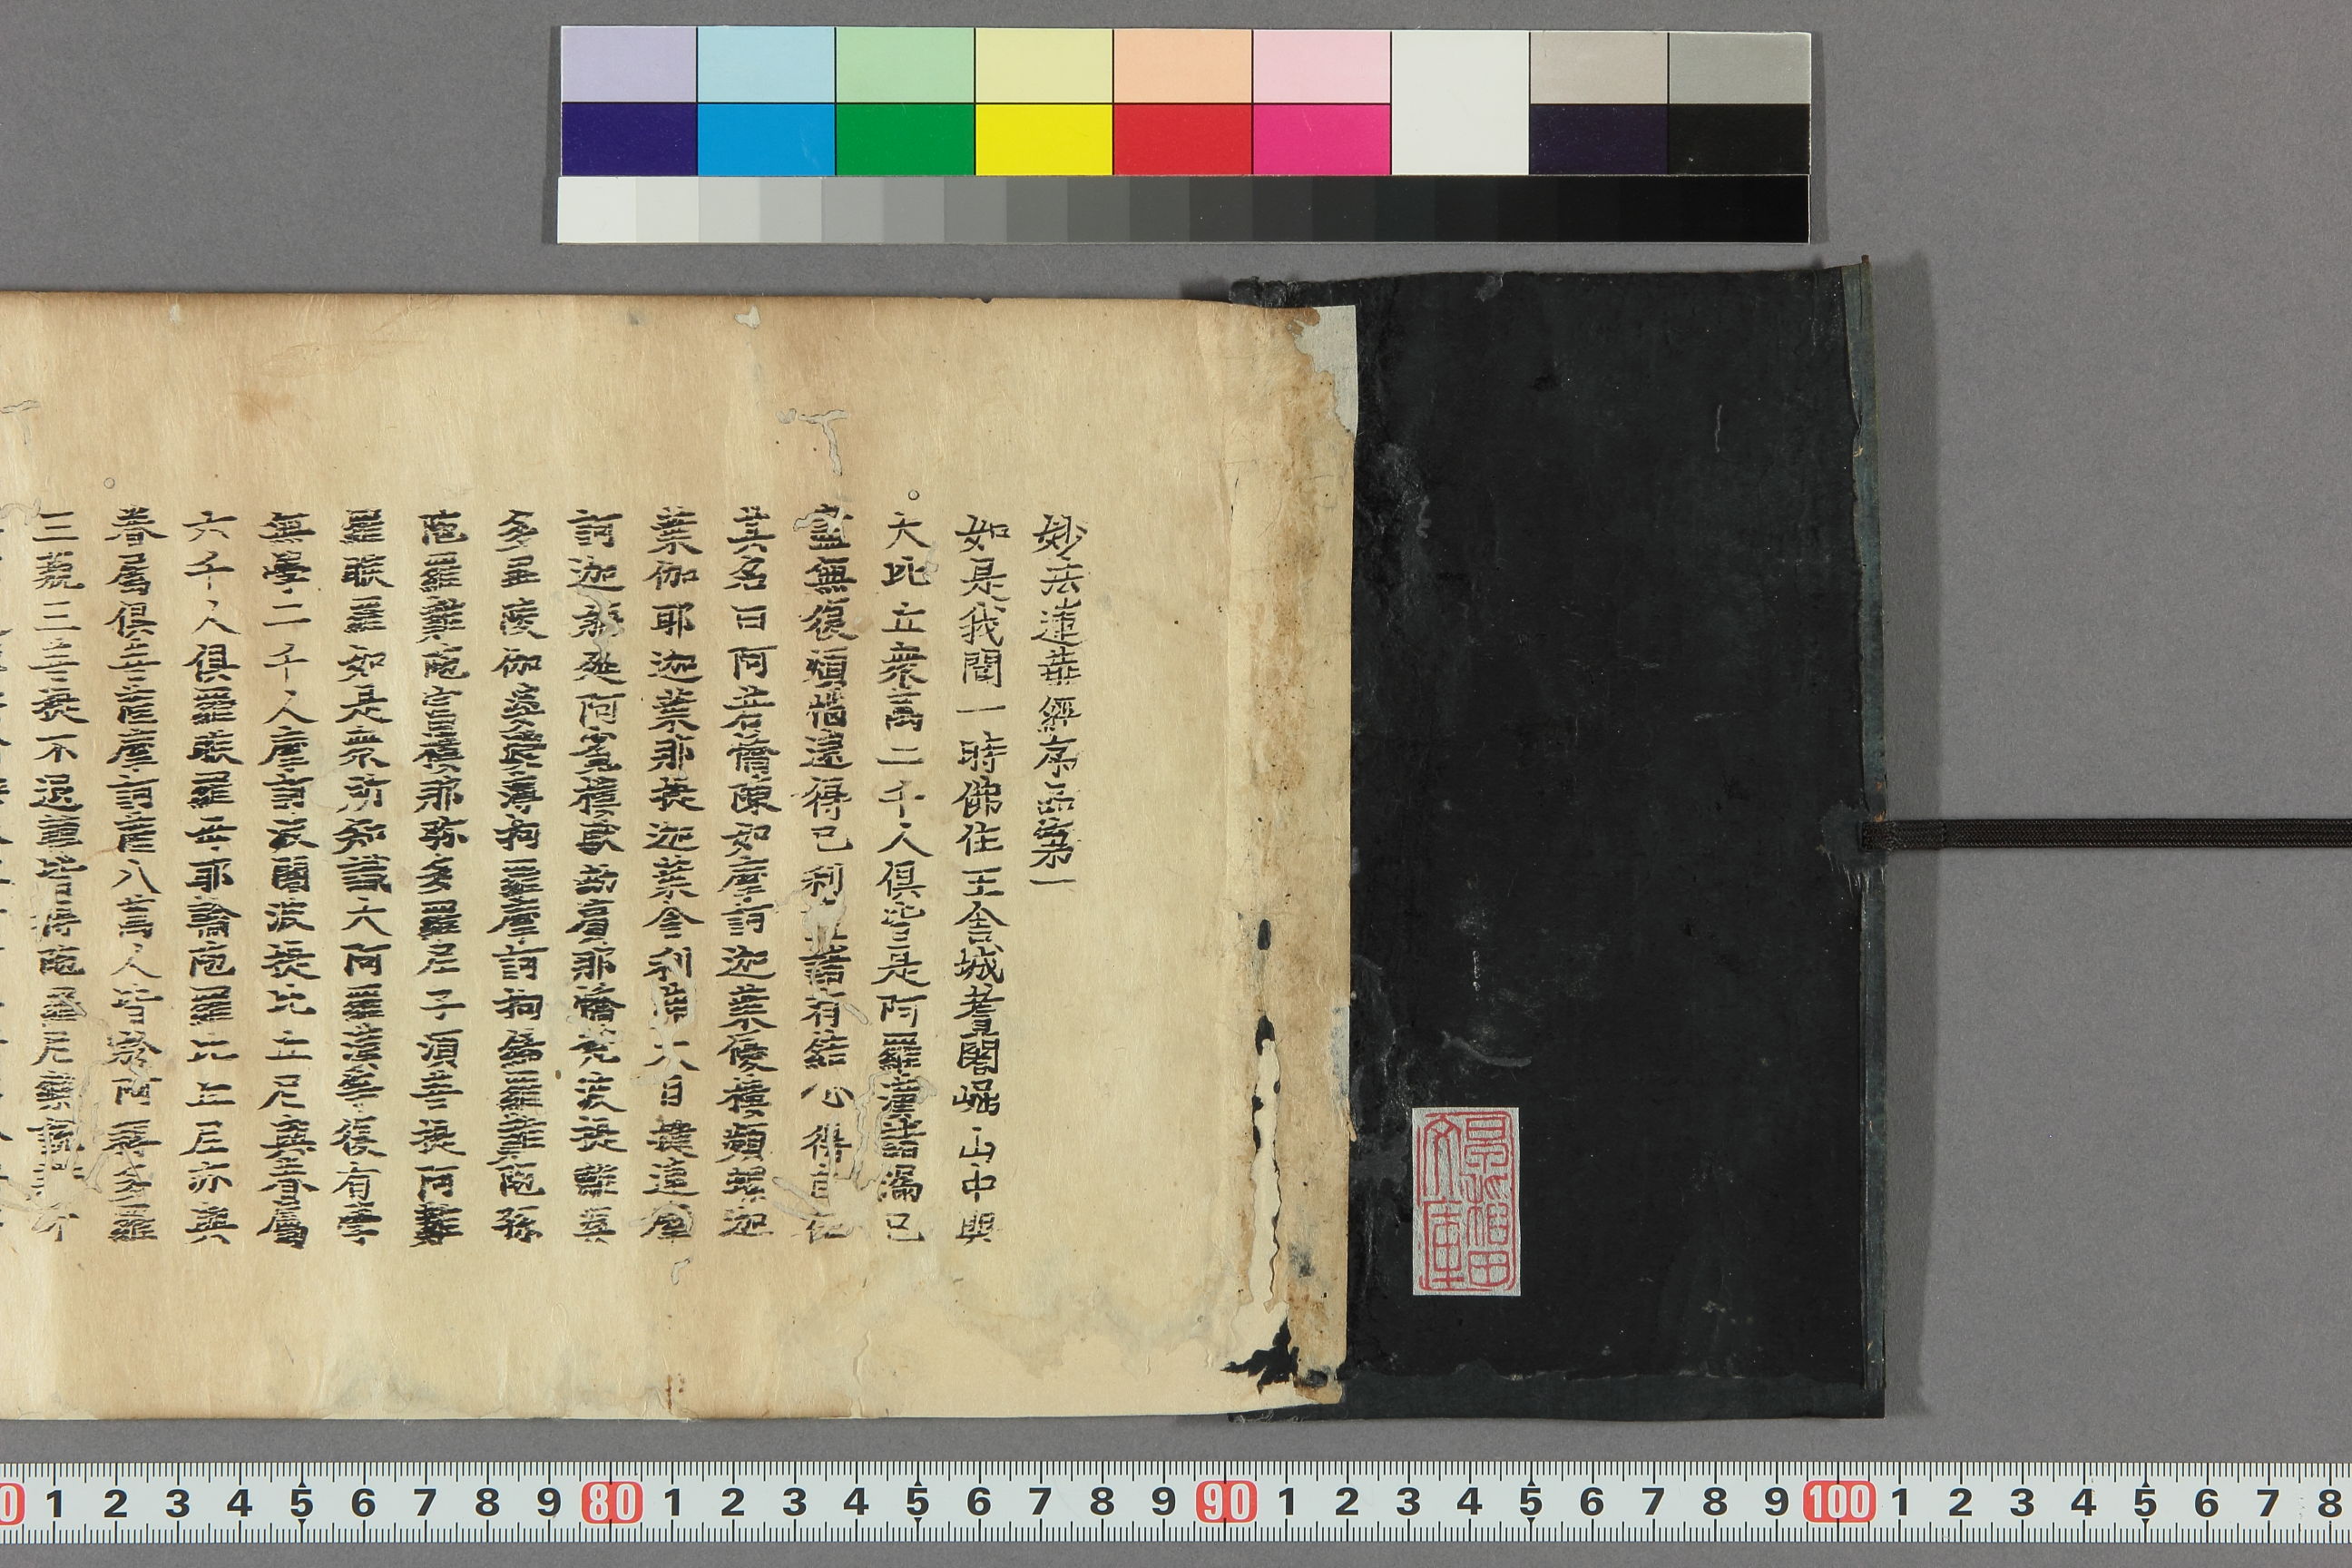 妙法蓮華經序品第一
如是我聞一時佛住王舍城耆闍崛山中與
大比丘衆萬二千人俱皆是阿羅漢諸漏已
盡無復煩惱逮得己利盡諸有結心得自在
其名曰阿若憍陳如摩訶迦葉優樓頻螺迦
葉伽耶迦葉那提迦葉舍利弗大目揵連摩
訶迦旃延阿㝹樓馱劫賓那憍梵波提離婆
多畢陵伽婆蹉薄拘羅摩訶拘絺羅難陀孫
陀羅難陀富樓那弥多羅尼子須菩提阿難
羅睺羅如是衆所知識大阿羅漢等復有學
無學二千人摩訶波闍波提比丘尼與眷屬
六千人俱羅睺羅母耶輸陀羅比丘尼亦與
眷屬俱菩薩摩訶薩八萬人皆於阿耨多羅
三藐三菩提不退轉皆得陀羅尼樂說辯才
景福田文庫
0 1 2 3 4 5 6 7 8 9 80 1 2 3 4 5 6 7 8 9 90 1 2 3 4 5 6 7 8 9 100 1 2 3 4 5 6 7 8